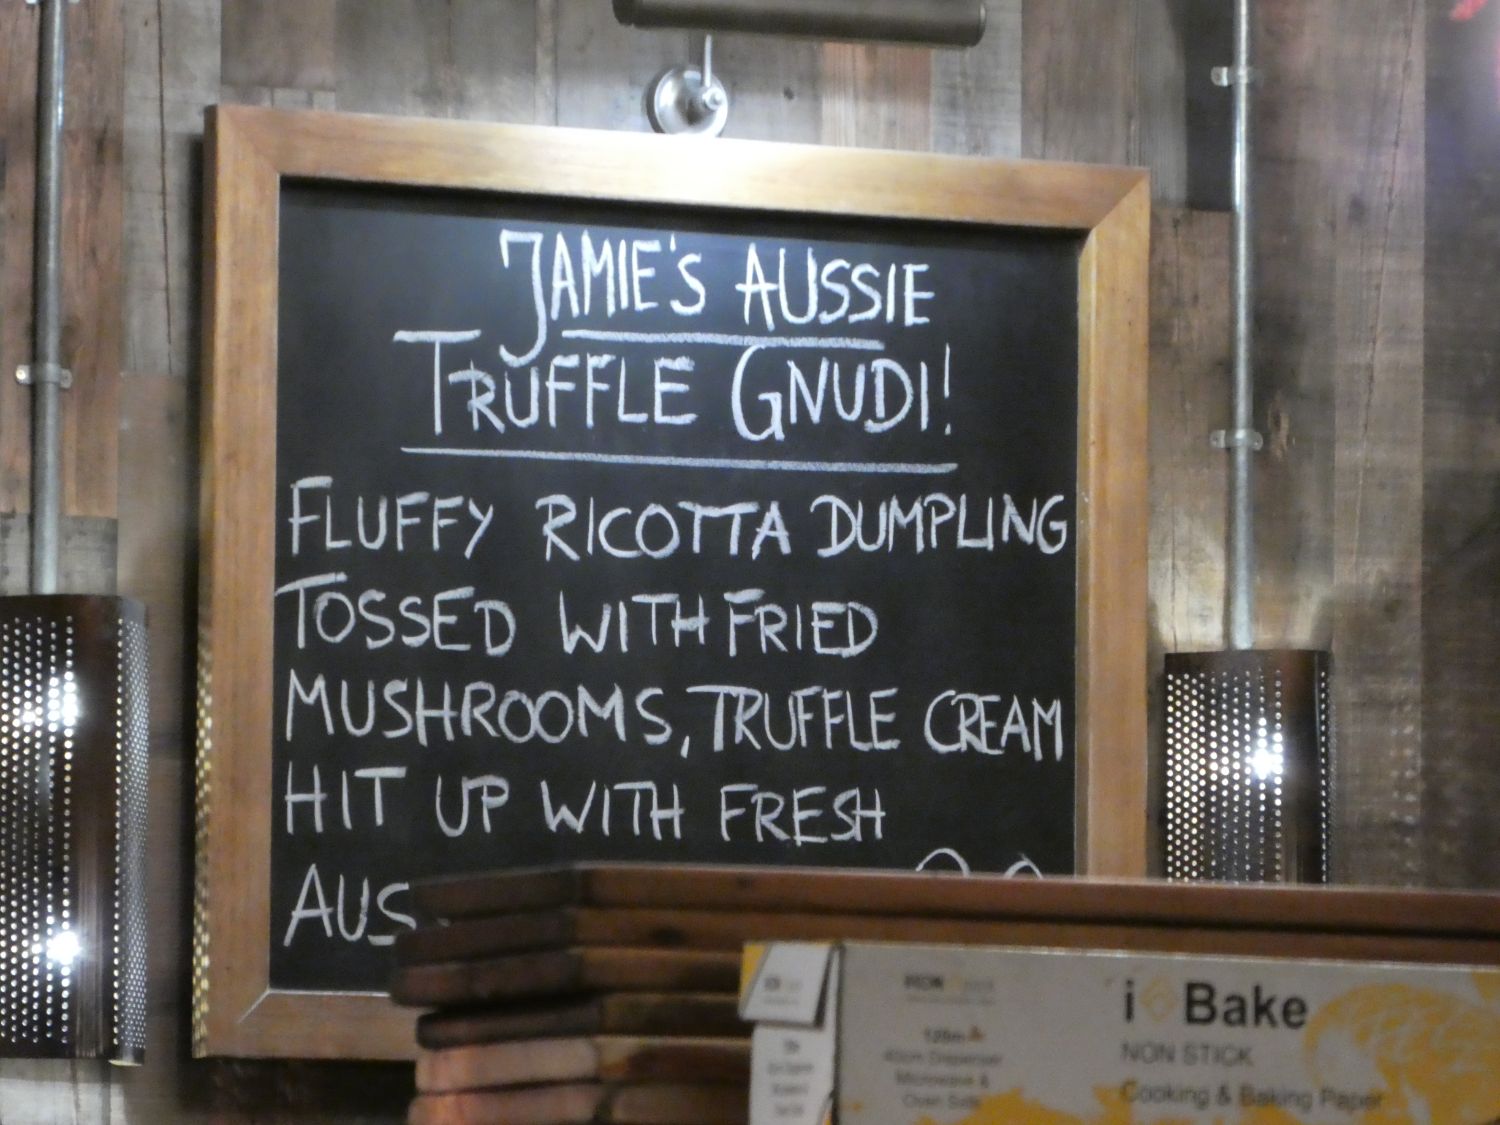 JAMIE'S AUSSIE
TRUFFLE GNUDI!
FLUFFY RICOTTA DUMPLING
TOSSED WITH FRIED
MUSHROOMS, TRUFFLE CREAM
HIT UP WITH FRESH
AUS
i Bake
NON STICK
Cooking & Baking Paper
120m
40cm Dispenser
Microwave &
Oven Safe